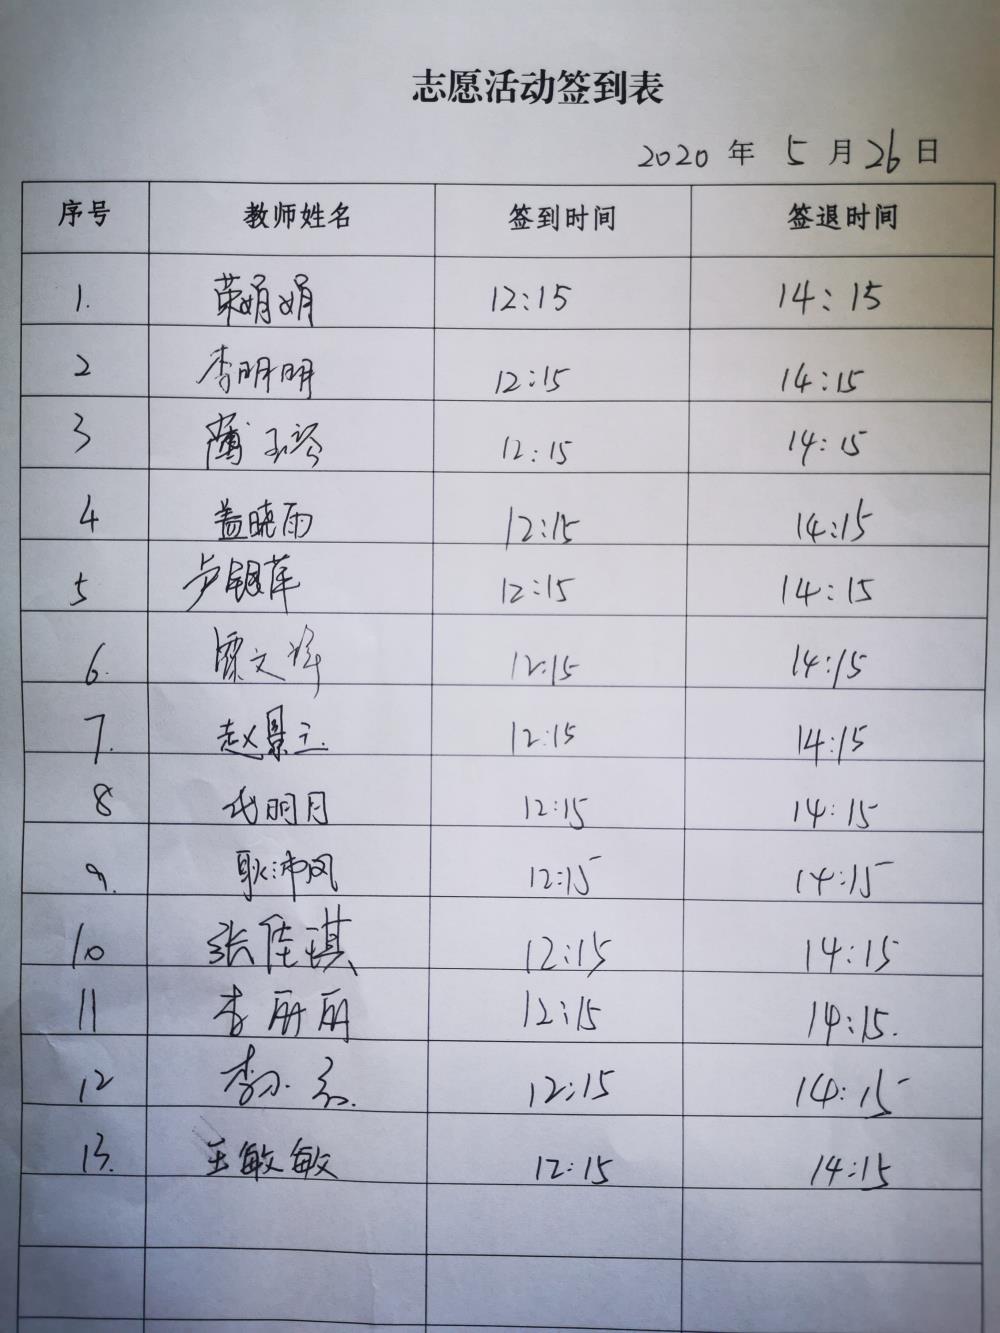 志愿活动签到表
2020 年 5 月 26 日
序号 教师姓名 签到时间 签退时间
1. 荣娟娟 12:15 14:15
2 李明明 12:15 14:15
3 12:15 14:15
4 盖晓雨 12:15 14:15
5 卢银萍 12:15 14:15
6. 12:15 14:15
7. 赵景立 12:15 14:15
8 代明月 12:15 14:15
9. 耿沛风 12:15 14:15
10 张佳琪 12:15 14:15
11 李丽丽 12:15 14:15.
12 12:15 14:15
13. 王敏敏 12:15 14:15